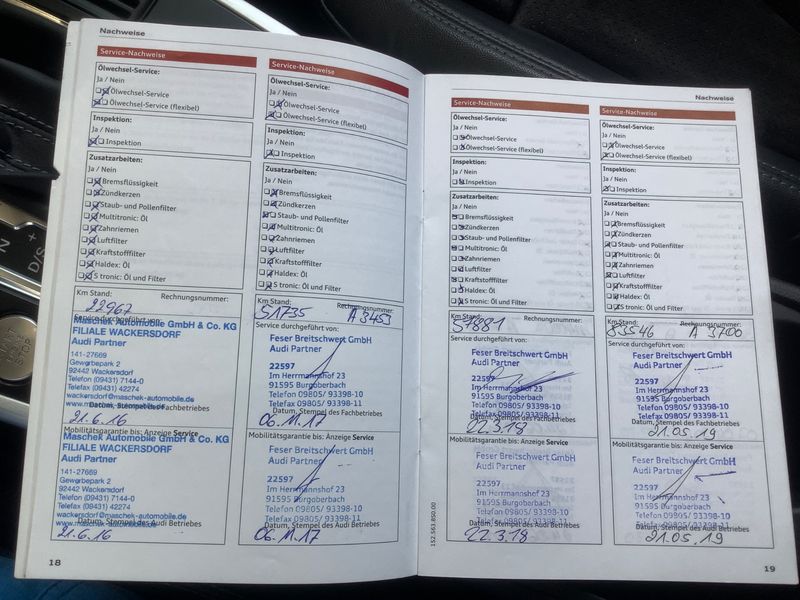 Nachweise
Service-Nachweise
Ölwechsel-Service:
Ja / Nein
Ölwechsel-Service
Ölwechsel-Service (flexibel)
Inspektion:
Ja / Nein
Inspektion
Zusatzarbeiten:
Ja / Nein
Bremsflüssigkeit
Zündkerzen
Staub- und Pollenfilter
Multitronic: Öl
Zahnriemen
Luftfilter
Kraftstofffilter
Haldex: Öl
S tronic: Öl und Filter
Km Stand: Rechnungsnummer:
22967
Service durchgeführt von:
Maschek Automobile GmbH & Co. KG
FILIALE WACKERSDORF
Audi Partner
141-27669
Gewerbepark 2
92442 Wackersdorf
Telefon (09431) 7144-0
Telefax (09431) 42274
wackersdorf@maschek-automobile.de
www.maschek-automobile.de
Datum, Stempel des Fachbetriebes
21.6.16
Mobilitätsgarantie bis: Anzeige Service
Maschek Automobile GmbH & Co. KG
FILIALE WACKERSDORF
Audi Partner
141-27669
Gewerbepark 2
92442 Wackersdorf
Telefon (09431) 7144-0
Telefax (09431) 42274
wackersdorf@maschek-automobile.de
www.maschek-automobile.de
Datum, Stempel des Audi Betriebes
21.6.16
18
Service-Nachweise
Ölwechsel-Service:
Ja / Nein
Ölwechsel-Service
Ölwechsel-Service (flexibel)
Inspektion:
Ja / Nein
Inspektion
Zusatzarbeiten:
Ja / Nein
Bremsflüssigkeit
Zündkerzen
Staub- und Pollenfilter
Multitronic: Öl
Zahnriemen
Luftfilter
Kraftstofffilter
Haldex: Öl
S tronic: Öl und Filter
Km Stand: Rechnungsnummer:
51735 A 3453
Service durchgeführt von:
Feser Breitschwert GmbH
Audi Partner
22597
Im Herrmannshof 23
91595 Burgoberbach
Telefon 09805/ 93398-10
Telefax 09805/ 93398-11
Datum, Stempel des Fachbetriebes
06.11.17
Mobilitätsgarantie bis: Anzeige Service
Feser Breitschwert GmbH
Audi Partner
22597
Im Herrmannshof 23
91595 Burgoberbach
Telefon 09805/ 93398-10
Telefax 09805/ 93398-11
Datum, Stempel des Audi Betriebes
06.11.17
Nachweise
Service-Nachweise
Ölwechsel-Service:
Ja / Nein
Ölwechsel-Service
Ölwechsel-Service (flexibel)
Inspektion:
Ja / Nein
Inspektion
Zusatzarbeiten:
Ja / Nein
Bremsflüssigkeit
Zündkerzen
Staub- und Pollenfilter
Multitronic: Öl
Zahnriemen
Luftfilter
Kraftstofffilter
Haldex: Öl
S tronic: Öl und Filter
Km Stand: Rechnungsnummer:
57881
Service durchgeführt von:
Feser Breitschwert GmbH
Audi Partner
22597
Im Herrmannshof 23
91595 Burgoberbach
Telefon 09805/ 93398-10
Telefax 09805/ 93398-11
Datum, Stempel des Fachbetriebes
22.3.18
Mobilitätsgarantie bis: Anzeige Service
Feser Breitschwert GmbH
Audi Partner
22597
Im Herrmannshof 23
91595 Burgoberbach
Telefon 09805/ 93398-10
Telefax 09805/ 93398-11
Datum, Stempel des Audi Betriebes
22.3.18
152.563.850.00
Service-Nachweise
Ölwechsel-Service:
Ja / Nein
Ölwechsel-Service
Ölwechsel-Service (flexibel)
Inspektion:
Ja / Nein
Inspektion
Zusatzarbeiten:
Ja / Nein
Bremsflüssigkeit
Zündkerzen
Staub- und Pollenfilter
Multitronic: Öl
Zahnriemen
Luftfilter
Kraftstofffilter
Haldex: Öl
S tronic: Öl und Filter
Km Stand: Rechnungsnummer:
83546 A 3700
Service durchgeführt von:
Feser Breitschwert GmbH
Audi Partner
22597
Im Herrmannshof 23
91595 Burgoberbach
Telefon 09805/ 93398-10
Telefax 09805/ 93398-11
Datum, Stempel des Fachbetriebes
21.05.19
Mobilitätsgarantie bis: Anzeige Service
Feser Breitschwert GmbH
Audi Partner
22597
Im Herrmannshof 23
91595 Burgoberbach
Telefon 09805/ 93398-10
Telefax 09805/ 93398-11
Datum, Stempel des Audi Betriebes
21.05.19
19
N
D/S
+
STOP